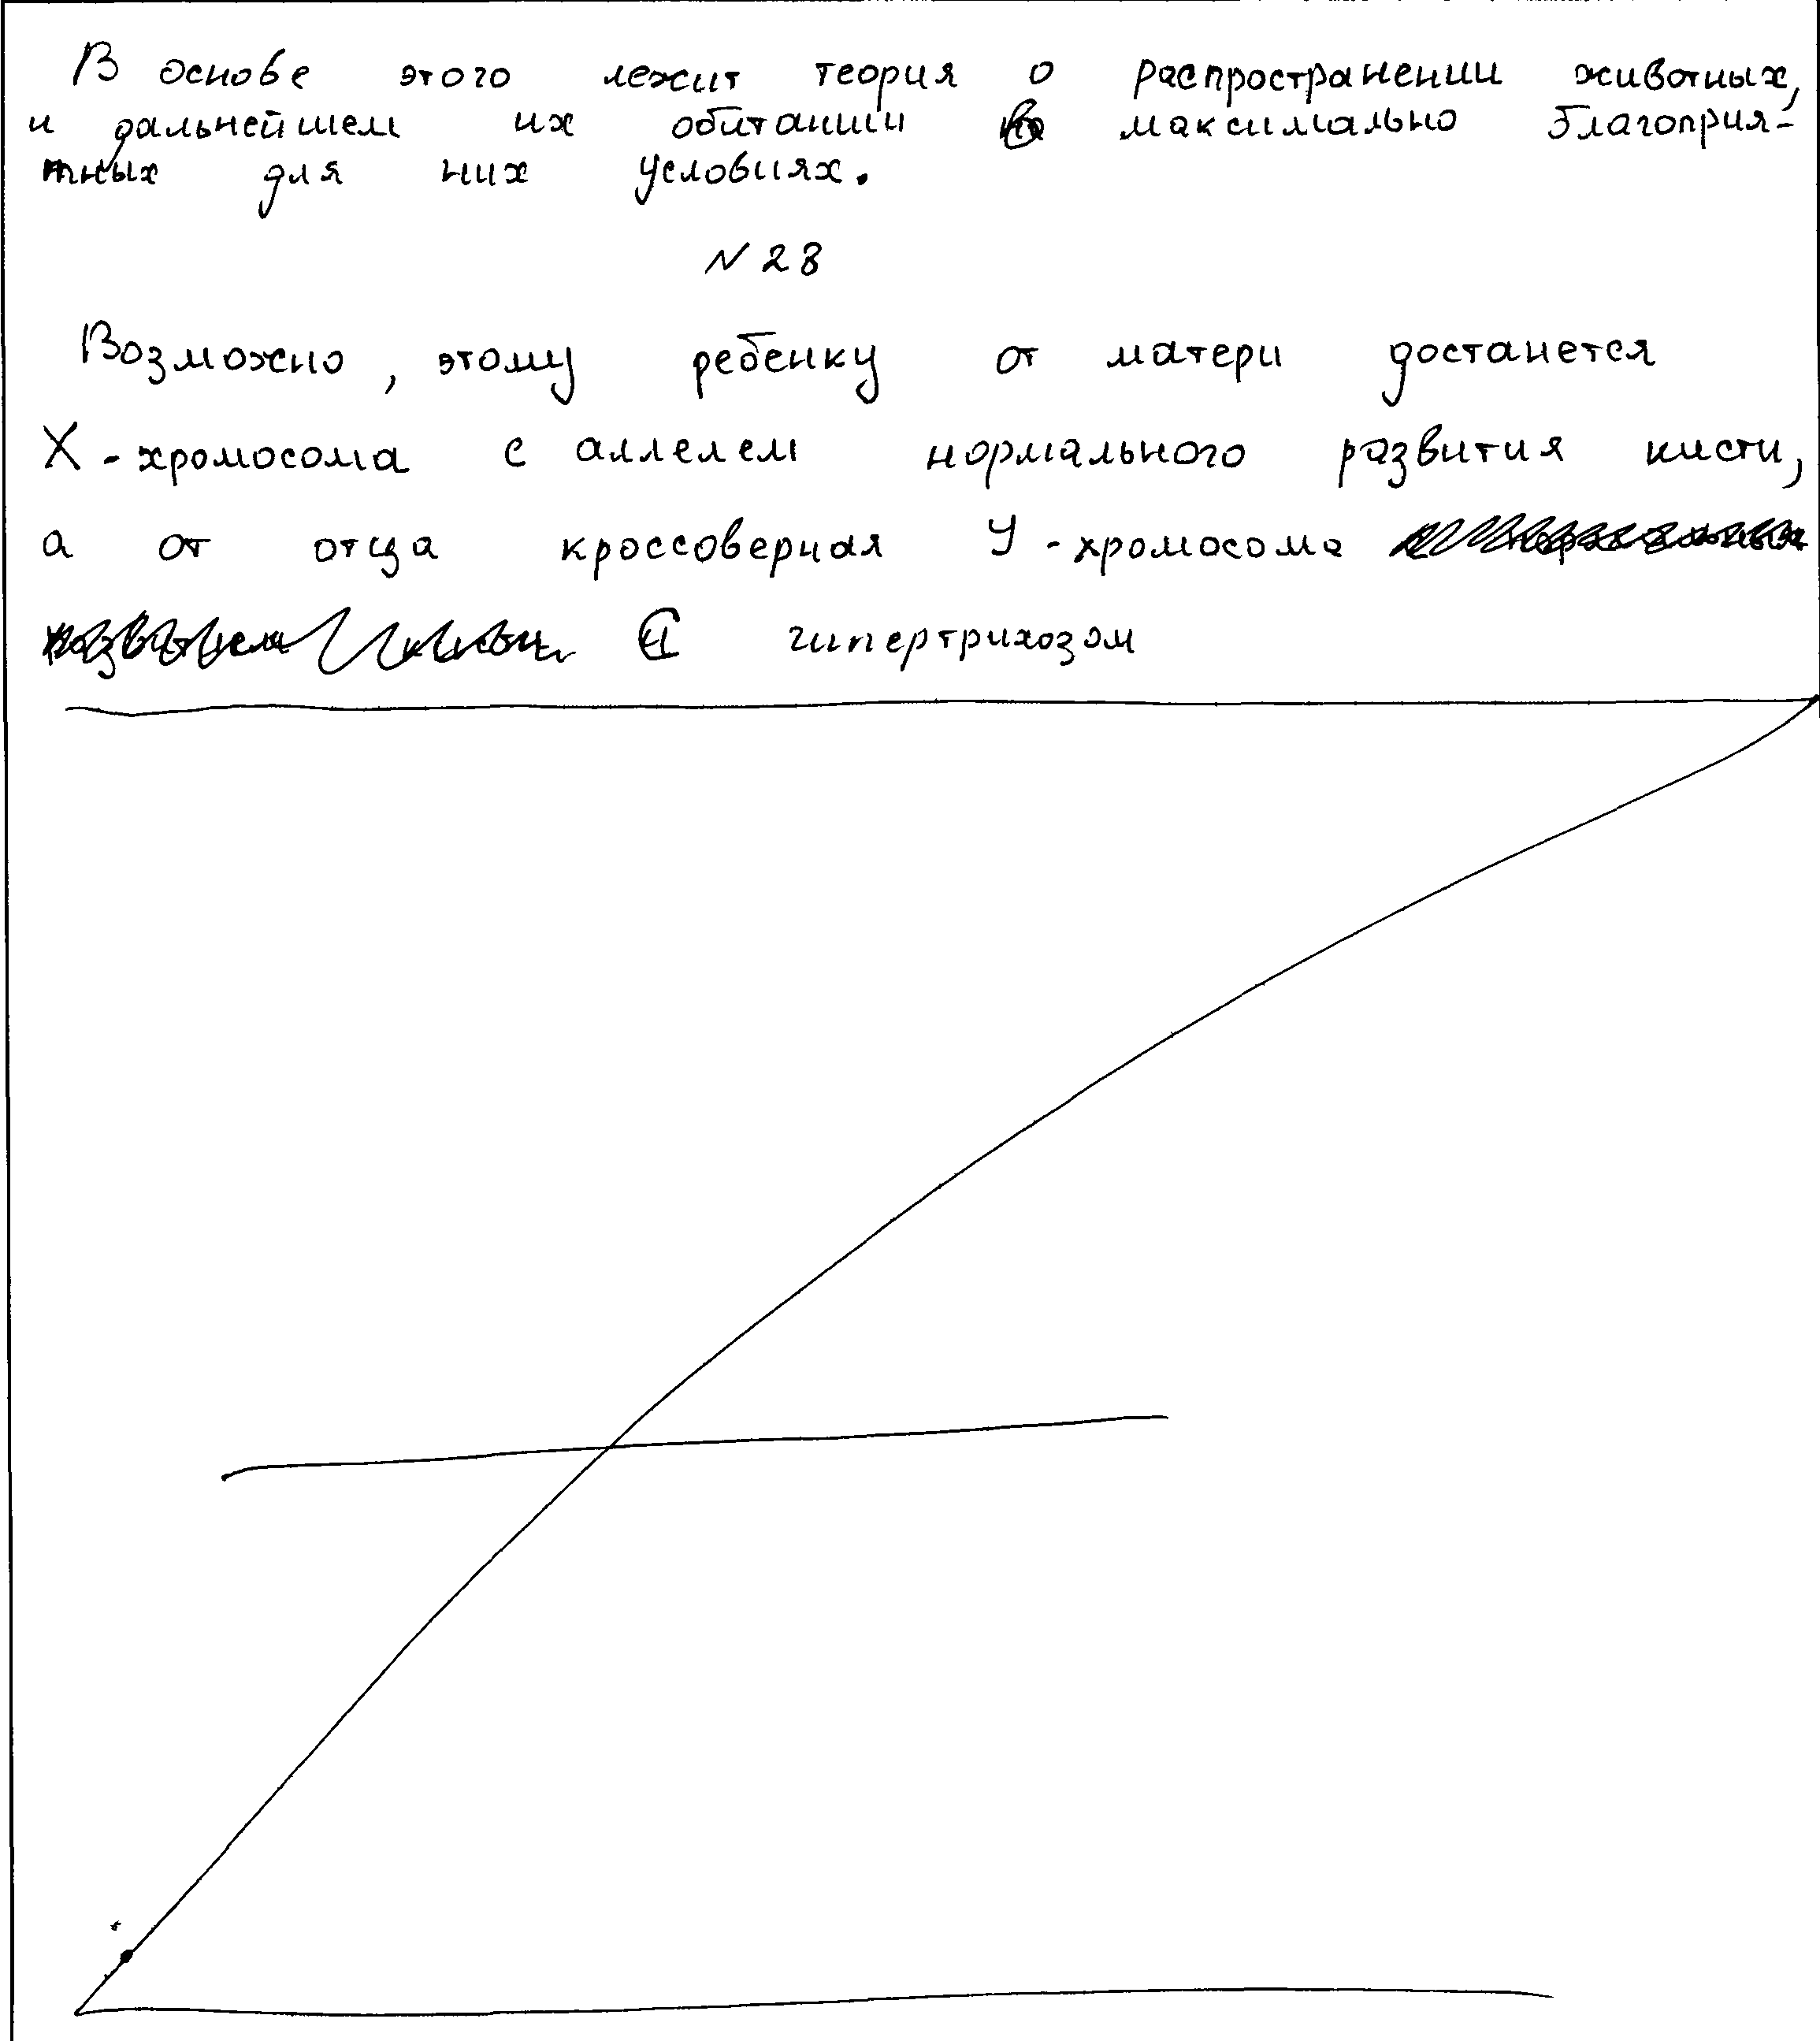 В основе этого лежит теория о распространении животных,
и дальнейшем их обитании в максимально благоприя-
тных для них условиях.
N 28
Возможно, этому ребенку от матери достанется
X - хромосома с аллелем нормального развития кисти,
а от отца кроссоверная У - хромосома
с гипертрихозом